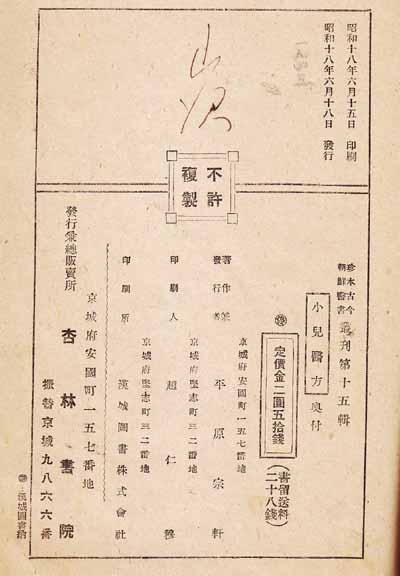 昭和十八年六月十五日 印刷
昭和十八年六月十八日 發行
不許
複製
珍本古今
朝鮮醫書
叢刊第十五輯
小兒醫方 奥付
定價金二圓五拾錢
(書留送料
二十八錢)
京城府安國町一五七番地
著作兼
發行者 平原宗軒
京城府堅志町三二番地
印刷人 趙仁穆
京城府堅志町三二番地
印刷所 漢城圖書株式會社
發行兼總販賣所
京城府安國町一五七番地
杏林書院
振替京城九八六六番
漢城圖書納